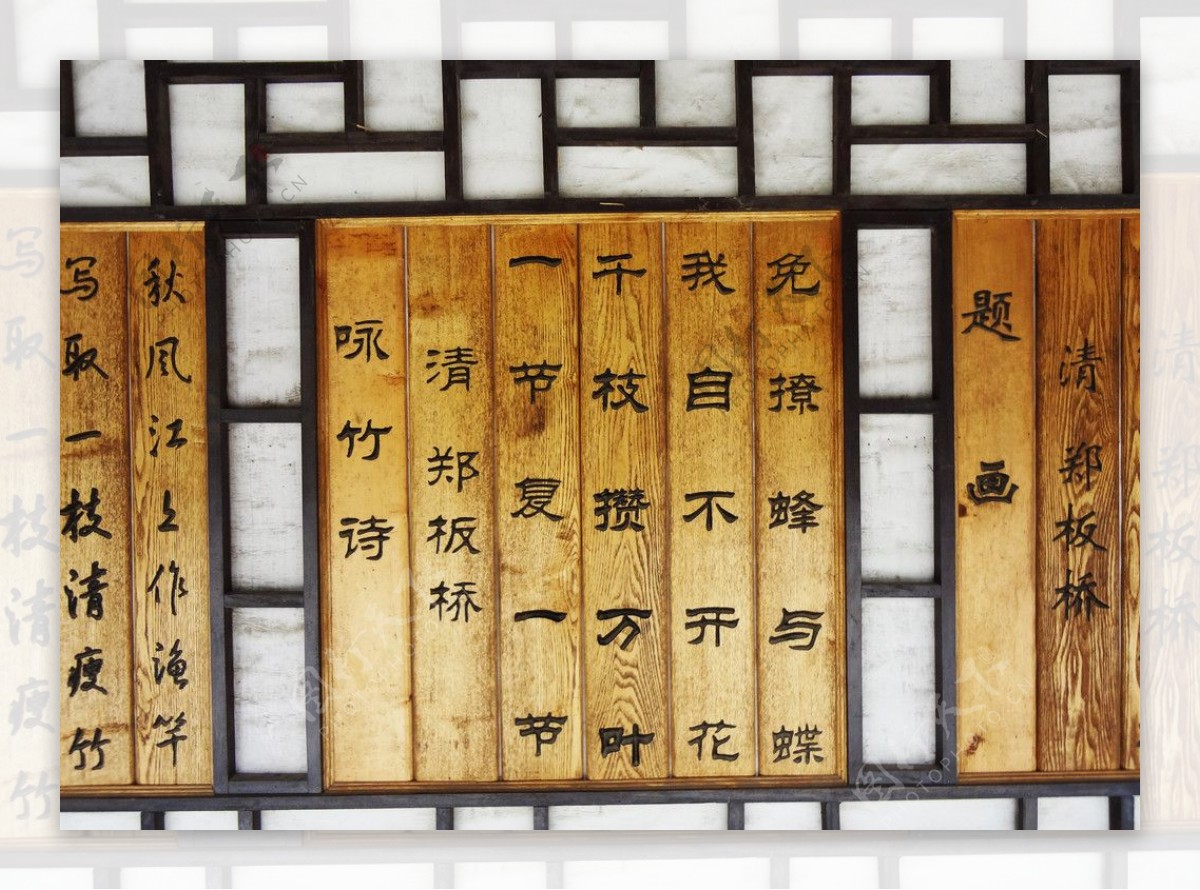 写取一枝清瘦竹
秋风江上作渔竿
咏竹诗
清 郑板桥
一节复一节
千枝攒万叶
我自不开花
免撩蜂与蝶
题画
清 郑板桥